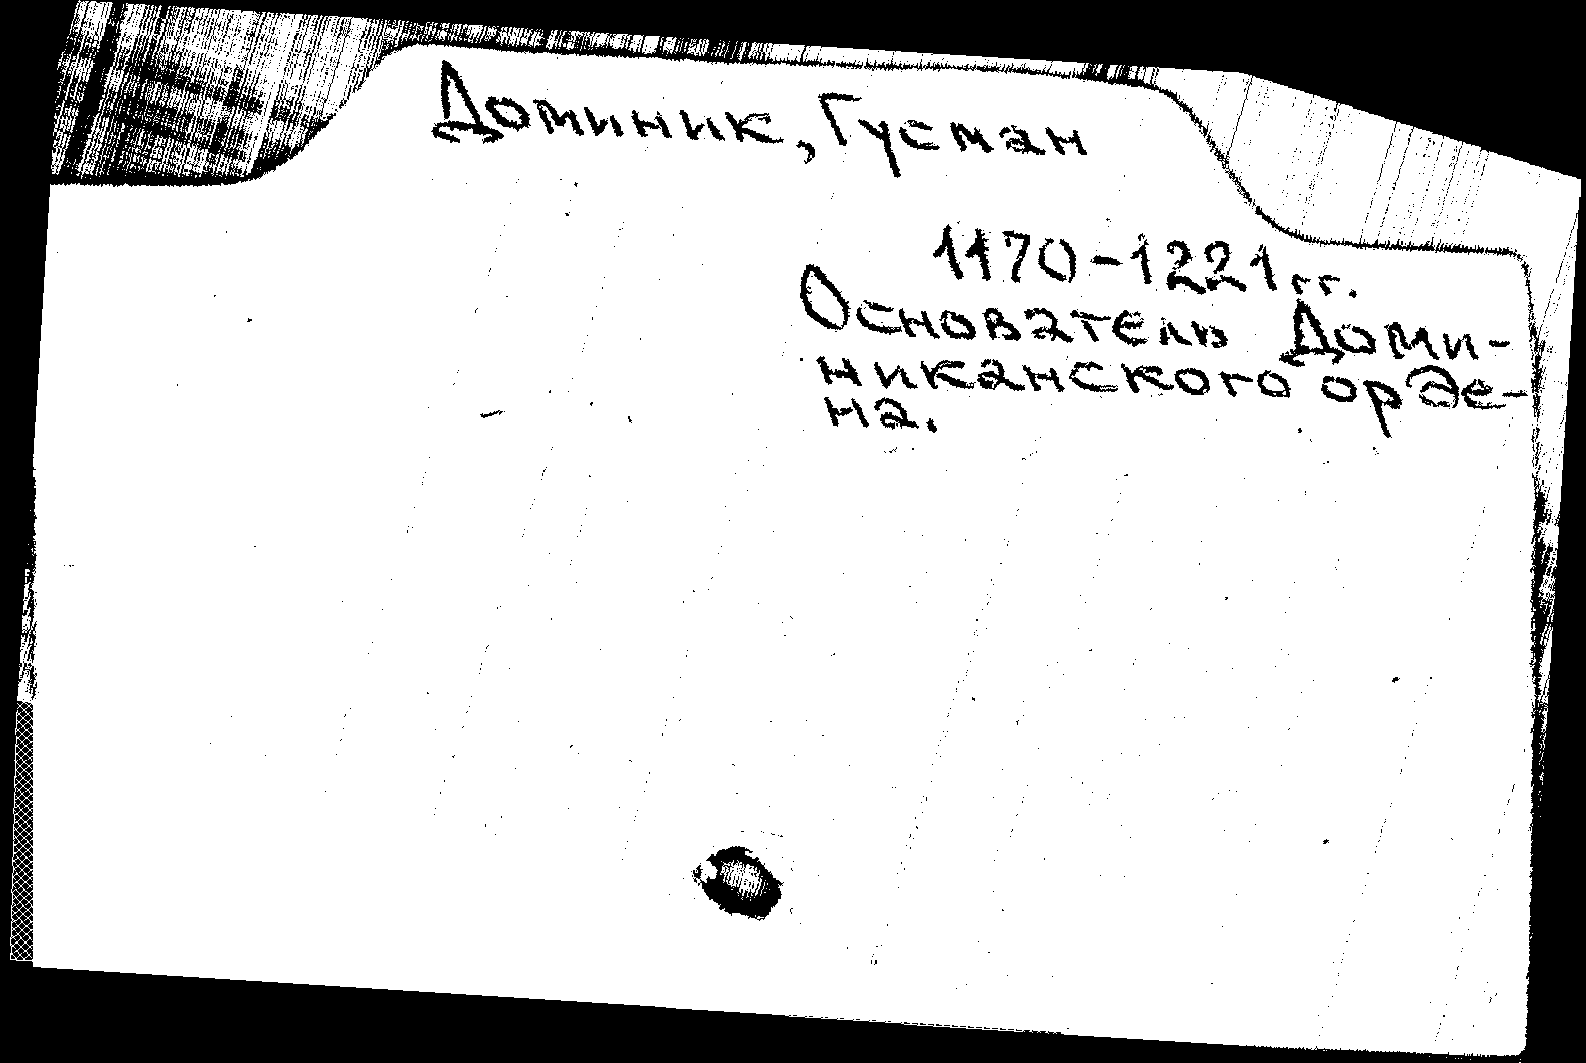 Доминик, Гусман
1170-1221 гг.
Основатель Доми-
никанского орде-
на.